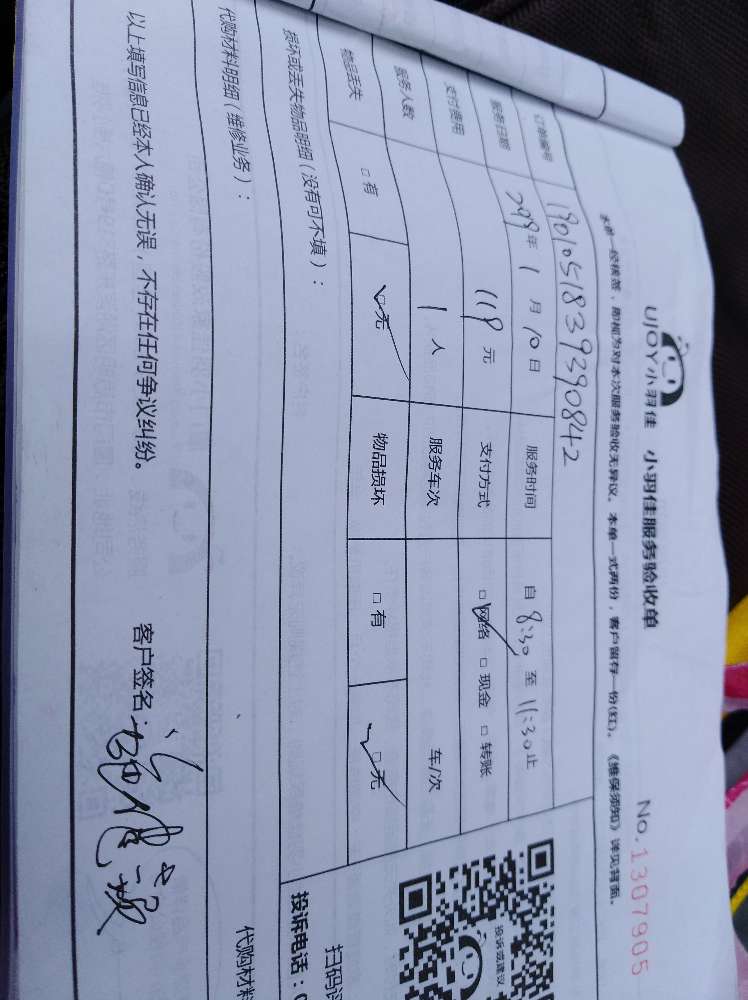 UJOY小羽佳 小羽佳服务验收单
No.1307905
本单一经核签,即视为对本次服务验收无异议。本单一式两份,客户留存一份(红)。《维保须知》详见背面。
订单编号 190105183939084２
服务日期 年 1 月 10 日 服务时间 自 8:30 至 11:30 止
支付费用 119 元 支付方式 □网络 □现金 □转账
服务人数 1 人 服务车次 车/次
物品丢失 □有 □无 物品损坏 □有 □无
损坏或丢失物品明细(没有可不填):
代购材料明细(维修业务):
代购材料
以上填写信息已经本人确认无误,不存在任何争议纠纷。
客户签名:
投诉或建议
投诉电话: